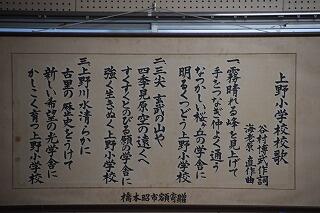 上野小学校校歌
谷村博武作詞
海老原直作曲
一、霧晴れる峰を見上げて
手をつなぎ仲よく通う
なつかしい桜の丘の学舎に
明るくつどう上野小学校
二、三尖玄武の山や
四季見原空の遠くへ
すくすくとのびる額の学舎に
強く生きぬく上野小学校
三、上野川水清らかに
古里の歴史をうけて
新しい希望の光学舎に
かしこく育つ上野小学校
橋本昭市額寄贈